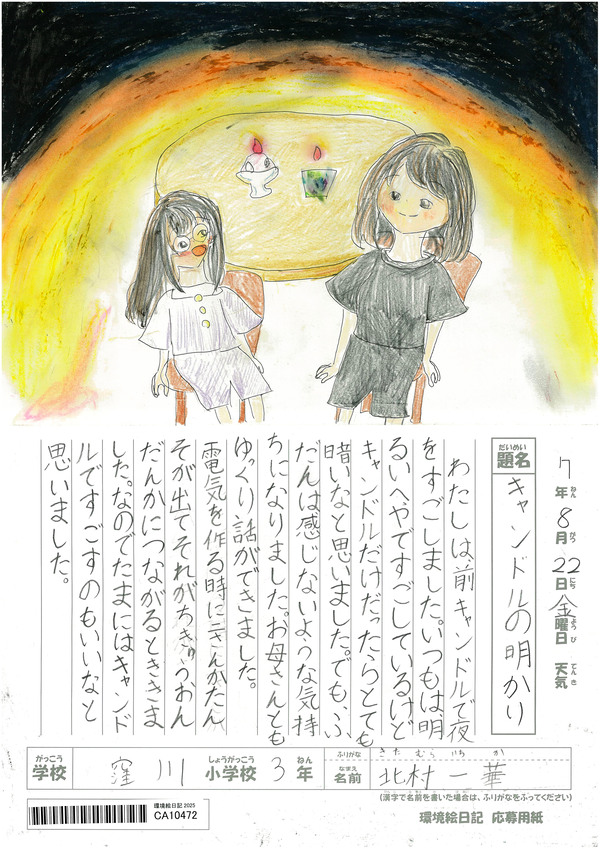 7年8月22日金曜日 天気
ねん がつ にち ようび てんき
だいめい
題名 キャンドルの明かり
わたしは、前キャンドルで夜
をすごしました。いつもは、明
るいへやですごしているけど
キャンドルだけだったらとても
暗いなと思いました。でも、ふ
だんは感じないような気持
ちになりました。お母さんとも
ゆっくり話ができました。
電気を作る時にニさんかたん
そが出てそれがちきゅうおん
だんかにつながるとききま
した。なのでたまにはキャンド
ルですごすのもいいなと
思いました。
がっこう しょうがっこう ねん
学校 窪川 小学校 3年
ふりがな きたむら いちか
なまえ
名前 北村一華
(漢字で名前を書いた場合は、ふりがなをふってください)
環境絵日記 2025
CA10472
環境絵日記 応募用紙